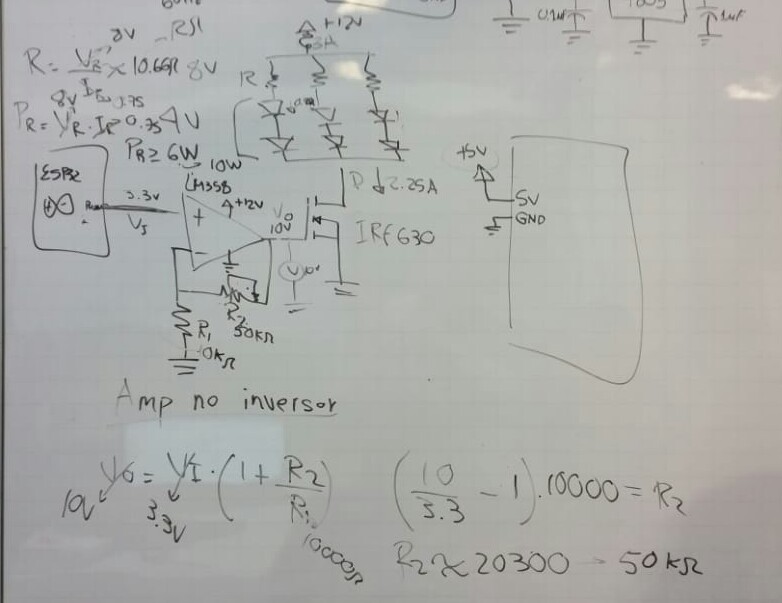 8V
+12V
0.1uF
.1uF
R = VR/IR ≈ 10.66Ω 8V
R
8V 0.75
PR = VR · IR 0.75 4V
PR ≥ 6W
10W
ESP32
3.3V
VI
LM358
+
+12V
-
VO
10V
D ↓ 2.25A
IRF630
V
+5V
5V
GND
R2
50kΩ
R1
10kΩ
Amp no inversor
VO = VI · (1 + R2/R1)
10V
3.3V
10000Ω
(10/3.3 - 1) . 10000 = R2
R2 ≈ 20300 → 50kΩ